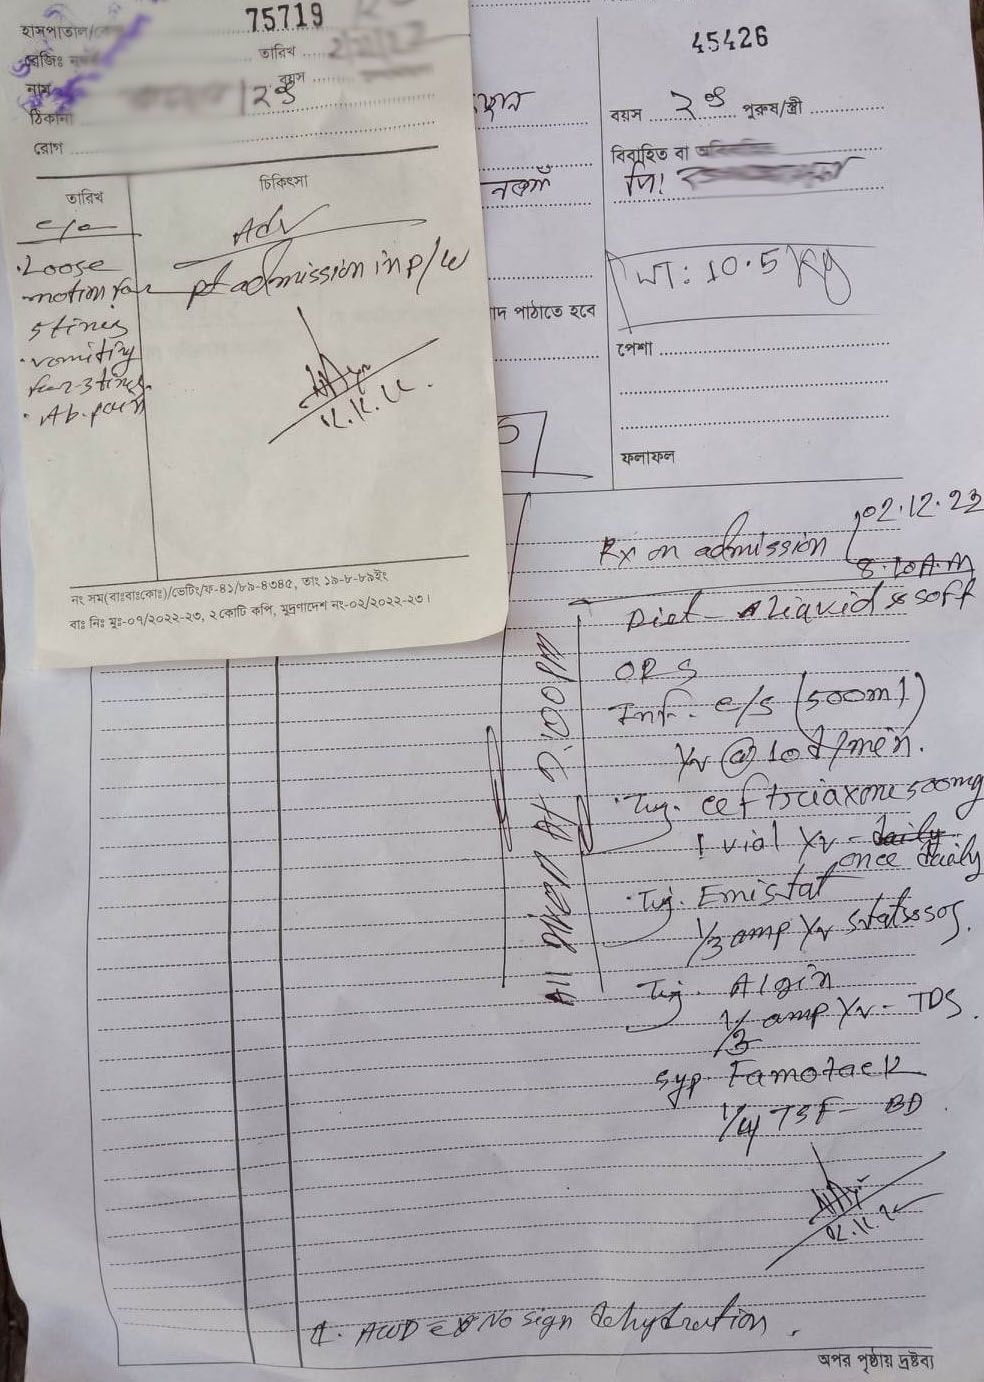 75719
হাসপাতাল/
রেজিঃ
তারিখ
নাম
বয়স
ঠিকানা
রোগ
তারিখ
চিকিৎসা
c/o
Adv
. Loose
motion for
5 times
. vomiting
for 2-3 times
. Ab. pain
pt admission in p/w
12.12.22
নং সম(বাঃবাঃকোঃ)/ভেটিং/ফ-৪১/৮৯-৪৩৪৫, তাং ১৯-৮-৮৯ইং
বাঃ নিঃ মুঃ-০৭/২০২২-২৩, ২ কোটি কপি, মুদ্রণাদেশ নং-০২/২০২২-২৩।
45426
বয়স ২ পুরুষ/স্ত্রী
বিবাহিত বা অবিবাহিত
WT: 10.5 Kg
াদ পাঠাতে হবে
পেশা
ফলাফল
Rx on admission
02.12.23
8.10 A.M
Diet - Liquid & soft
ORS
Inf. c/s (500ml)
IV @ 10 d/min.
. Inj. ceftriaxone 500mg
1 vial IV - daily
once daily
. Inj. Emistat
1/3 amp IV stat & sos.
Inj. Algin
1/3 amp IV - TDS.
Syp. Famotack
1/4 TSF - BD
AWD No sign dehydration.
অপর পৃষ্ঠায় দ্রষ্টব্য